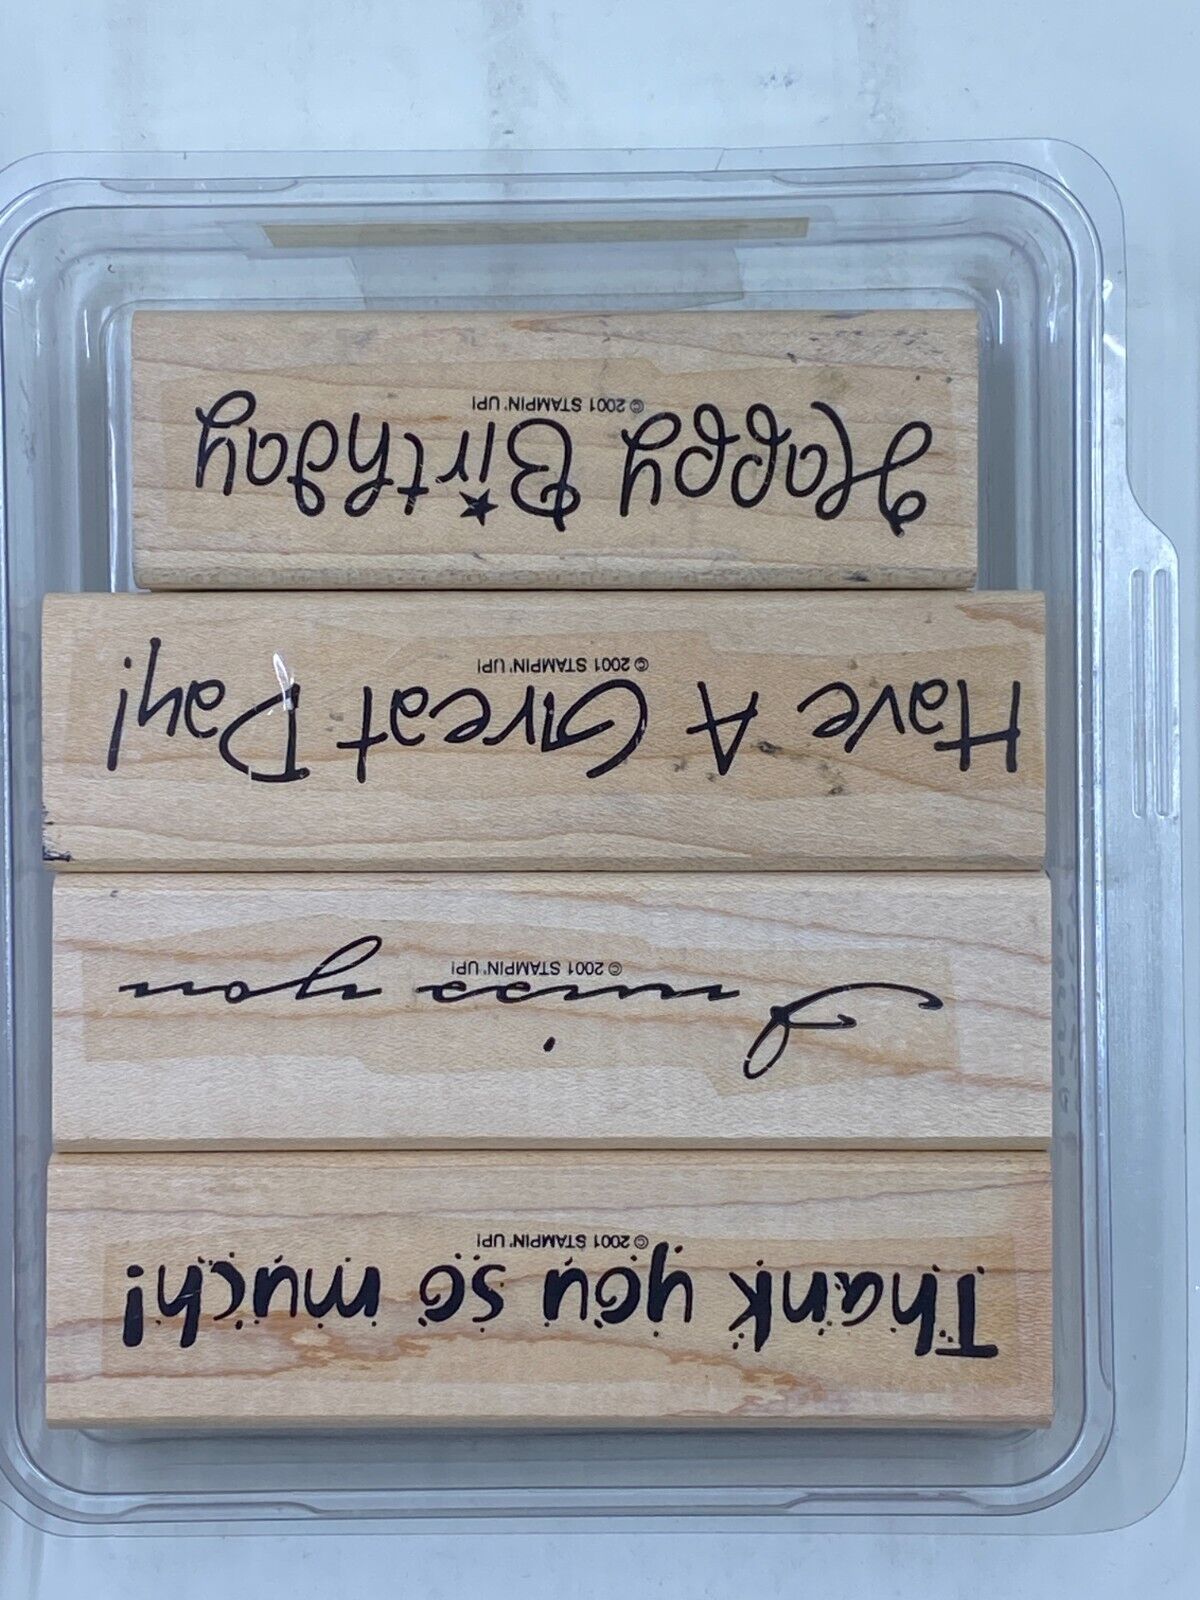 Thank you so much!
© 2001 STAMPIN' UP!
I miss you
© 2001 STAMPIN' UP!
Have A Great Day!
© 2001 STAMPIN' UP!
Happy Birthday
© 2001 STAMPIN' UP!